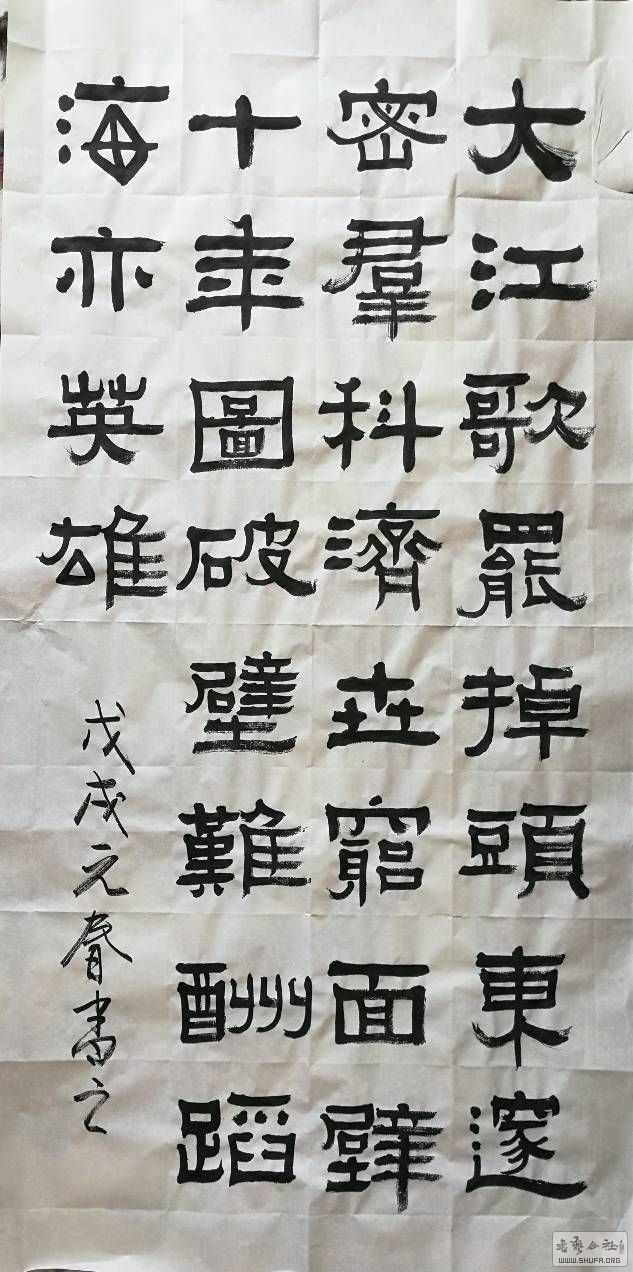 大江歌罷掉頭東邃
密羣科濟世窮面壁
十年圖破壁難酬蹈
海亦英雄
戊戌元春書之
书艺公社
WWW.SHUFA.ORG